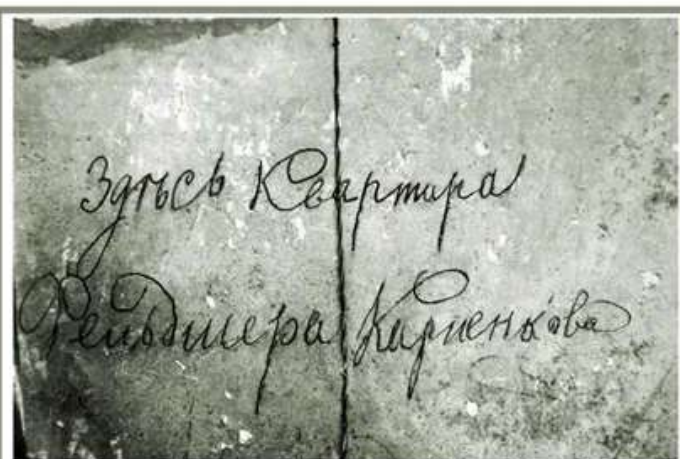 Здѣсь Квартира
Фельдшера Карпенкова